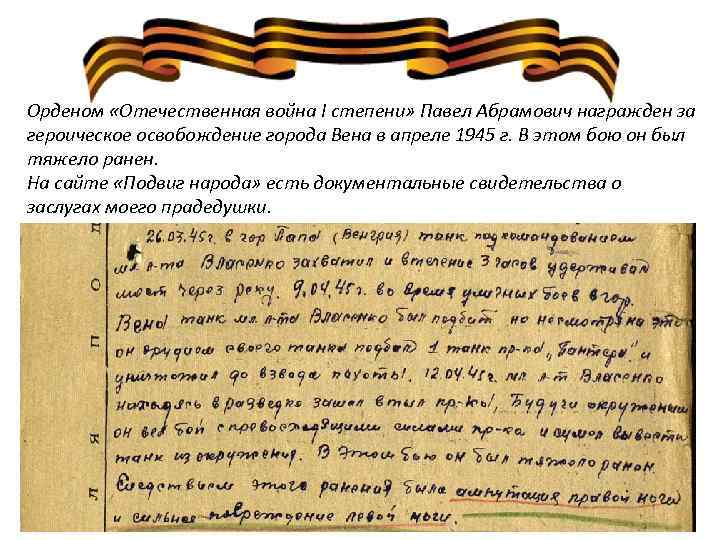 Орденом «Отечественная война I степени» Павел Абрамович награжден за
героическое освобождение города Вена в апреле 1945 г. В этом бою он был
тяжело ранен.
На сайте «Подвиг народа» есть документальные свидетельства о
заслугах моего прадедушки.
26.03.45г. в гор Папа (Венгрия) танк под командованием
мл. л-та Власенко захватил и в течение 3 часов удерживал
мост через реку. 9.04.45г. во время уличных боев в гор.
Вена танк мл. л-та Власенко был подбит но несмотря на это
он орудием своего танка подбил 1 танк пр-ка „Пантера" и
уничтожил до взвода пехоты. 12.04.45г. мл. л-т Власенко
находясь в разведке зашел в тыл пр-ка, Будучи окруженным
он вел бой с превосходящими силами пр-ка и сумел вывести
танк из окружения. В этом бою он был тяжело ранен.
Следствием этого ранения была ампутация правой ноги
и сильное повреждение левой ноги.
О
П
Я
Л